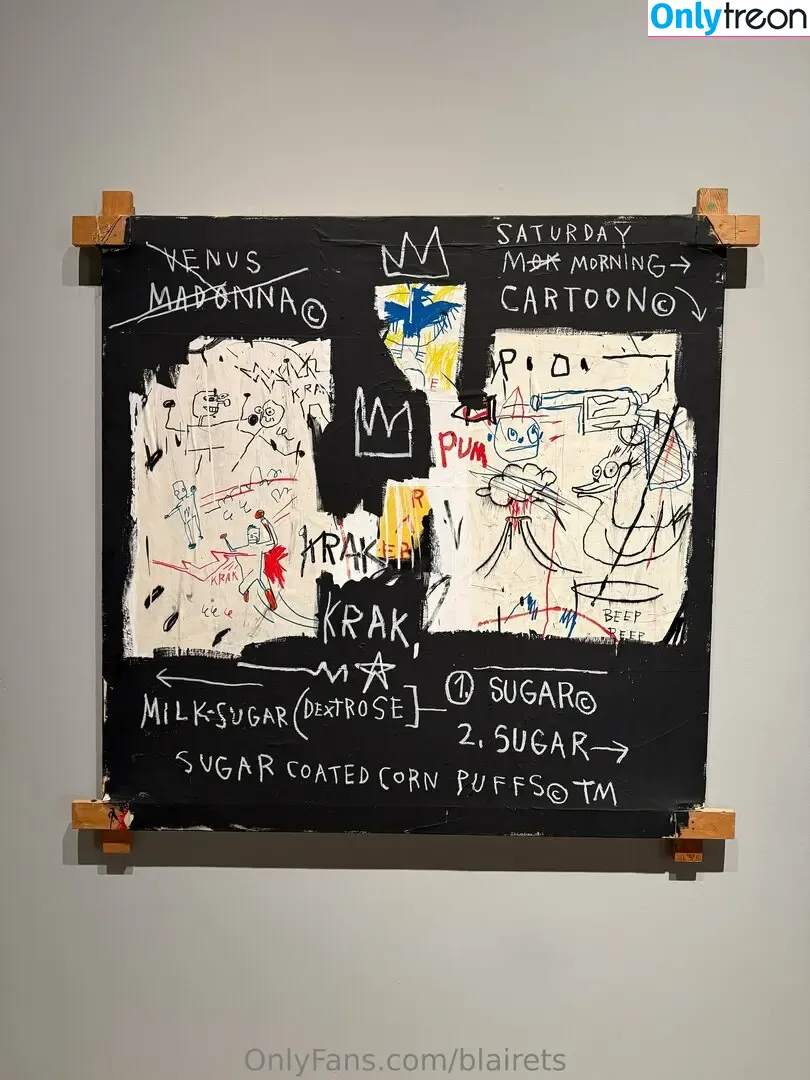 Onlytreon
VENUS
MADONNA©
SATURDAY
MOK MORNING→
CARTOON©
KRA
P.O.
PUM
R
E
KRAK
KRAK
KRAK,
BEEP
BEEP
MILK-SUGAR (DEXTROSE]
1. SUGAR©
2. SUGAR→
SUGAR COATED CORN PUFFS© TM
OnlyFans.com/blairets